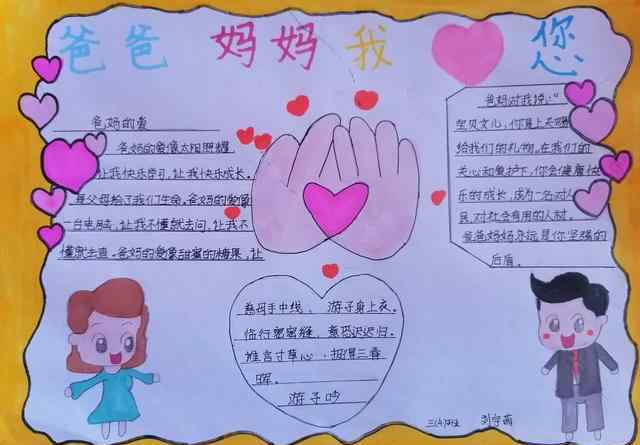 爸爸 妈妈 我 您
爸妈的爱
爸妈的爱像太阳照耀,
让我快乐学习,让我快乐成长。
是父母给了我们生命。爸妈的爱像
一台电脑,让我不懂就去问,让我不
懂就去查。爸妈的爱像甜蜜的糖果,让
爸妈对我说:“
宝贝女儿,你是上天赐
给我们的礼物。在我们的
关心和爱护下,你会健康快
乐的成长,成为一名对人
民,对社会有用的人材。
爸爸妈妈永远是你坚强的
后盾。
慈母手中线、 游子身上衣。
临行密密缝,意恐迟迟归。
谁言寸草心,报得三春
晖。
游子吟
三(4)班